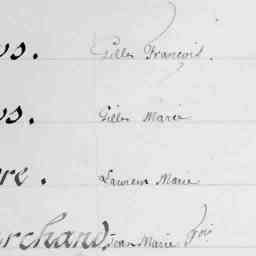 os. Gilles François.
os. Gilles Marie
re. Laurent Marie
rchand. Jean Marie fois